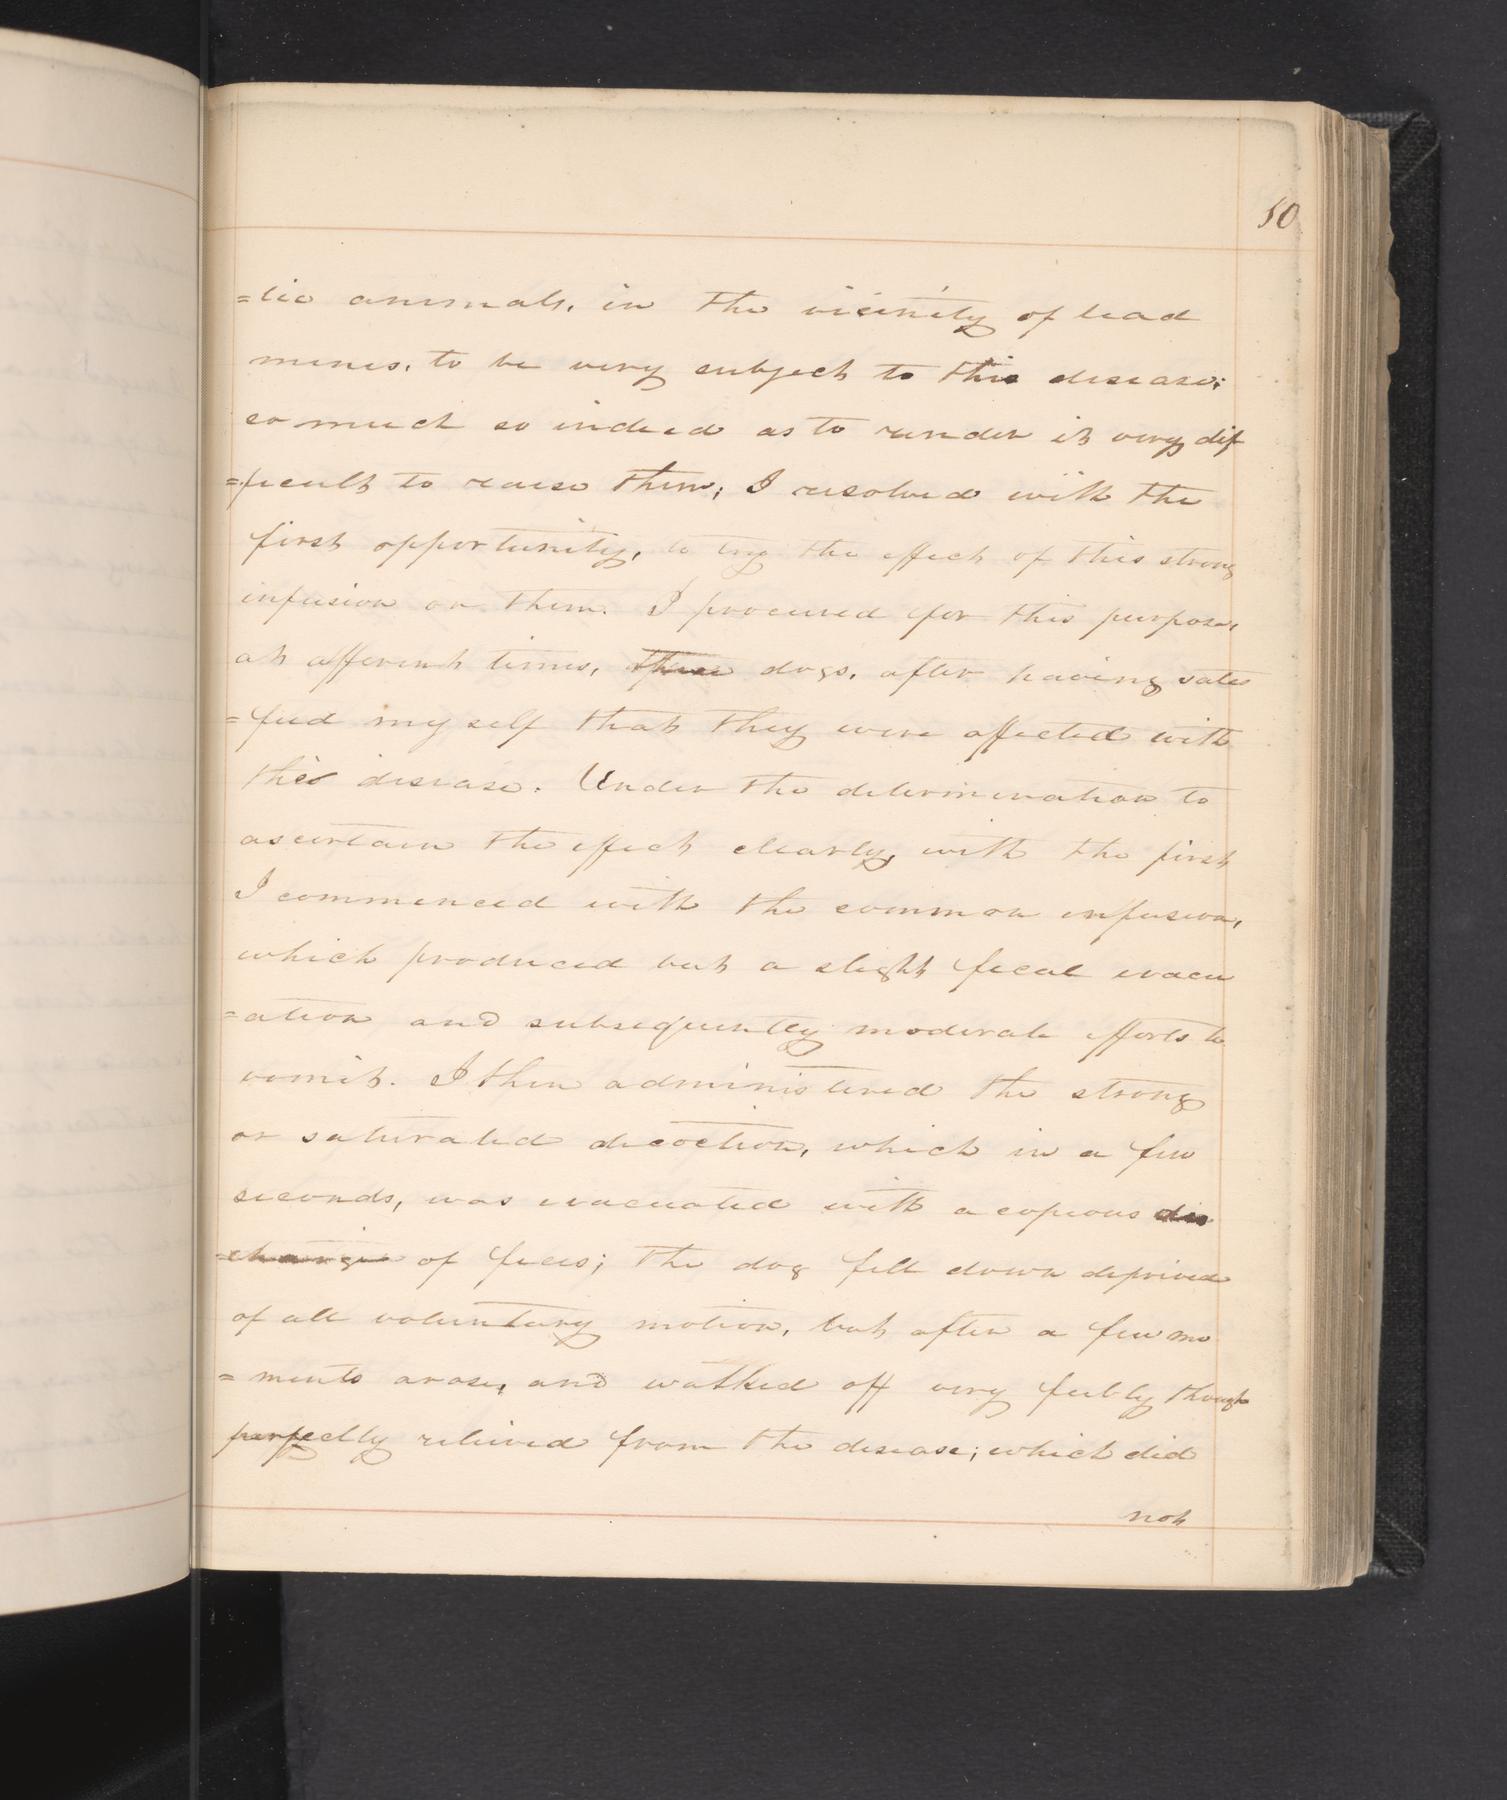 50
=tic animals, in the vicinity of lead
mines, to be very subject to this disease;
so much so indeed as to render it very dif
=ficult to raise them; I resolved with the
first opportunity, to try the effect of this strong
infusion on them. I procured for this purpose,
at different times, three dogs, after having satis
=fied myself that they were affected with
this disease. Under the determination to
ascertain the effect clearly, with the first
I commenced with the common infusion,
which produced but a slight fecal evacu
=ation and subsequently moderate efforts to
vomit. I then administered the strong
or saturated decoction, which in a few
seconds, was evacuated with a copious dis
=charge of feces; the dog fell down deprived
of all voluntary motion, but after a few mo
=ments arose, and walked off very feebly though
perfectly relieved from the disease; which did
not